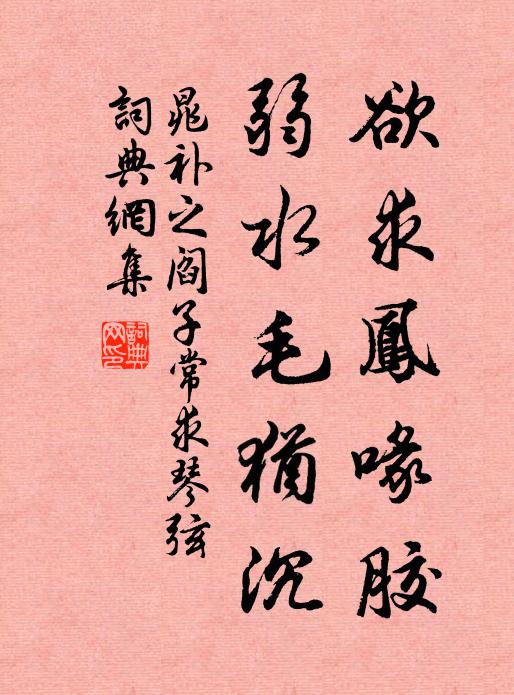 欲求鳳喙膠
弱水毛猶沉
晁补之阎子常求琴弦
詞典網集
詞典网印